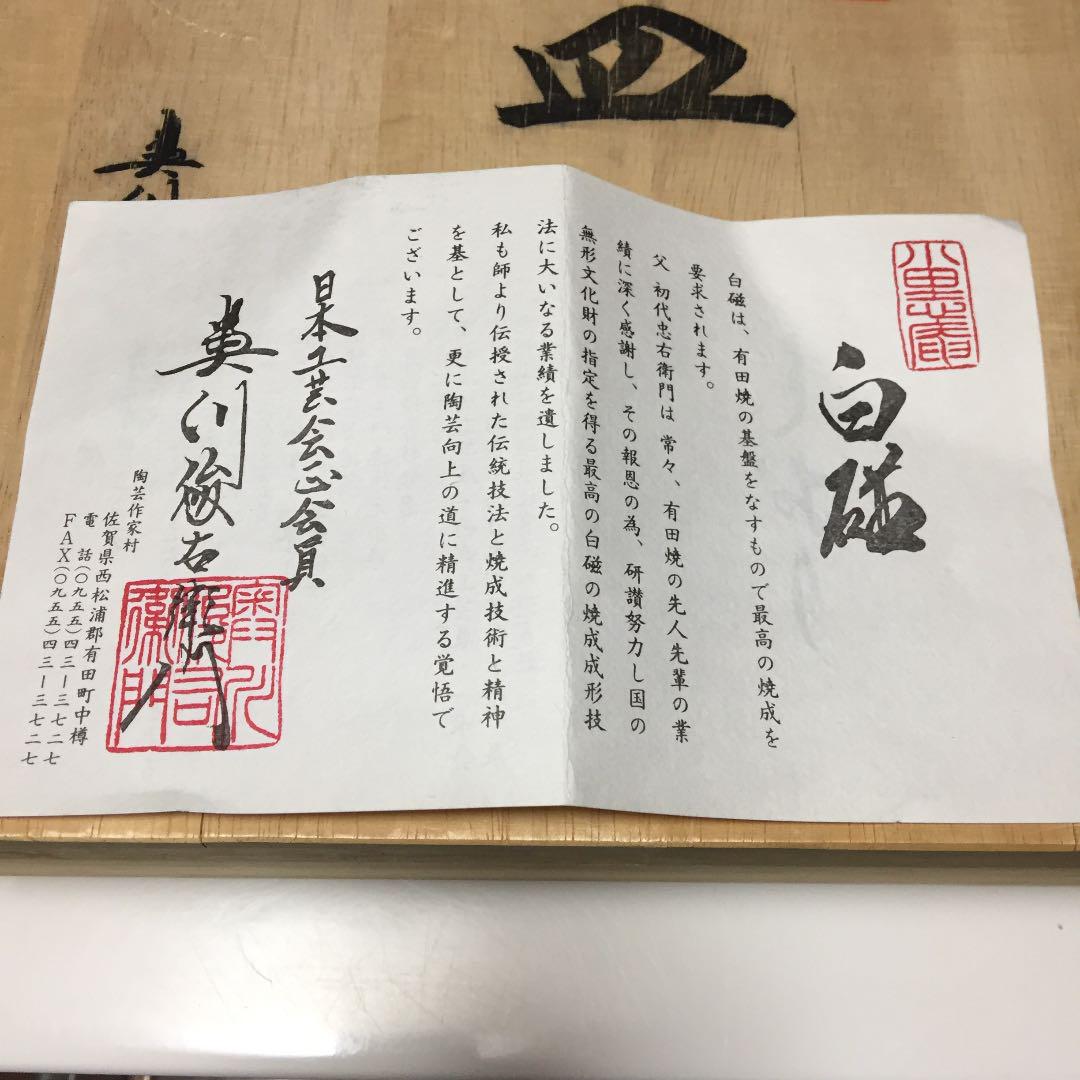 皿
白磁
白磁は、有田焼の基盤をなすもので最高の焼成を
要求されます。
父 初代忠右衛門は 常々、有田焼の先人先輩の業
績に深く感謝し、その報恩の為、研讃努力し国の
無形文化財の指定を得る最高の白磁の焼成成形技
法に大いなる業績を遺しました。
私も師より伝授された伝統技法と焼成技術と精神
を基として、更に陶芸向上の道に精進する覚悟で
ございます。
日本工芸会正会員
奥川俊右衛門
陶芸作家村
佐賀県西松浦郡有田町中樽
電 話(〇九五五)四三ー三七二七
FAX(〇九五五)四三ー三七二七